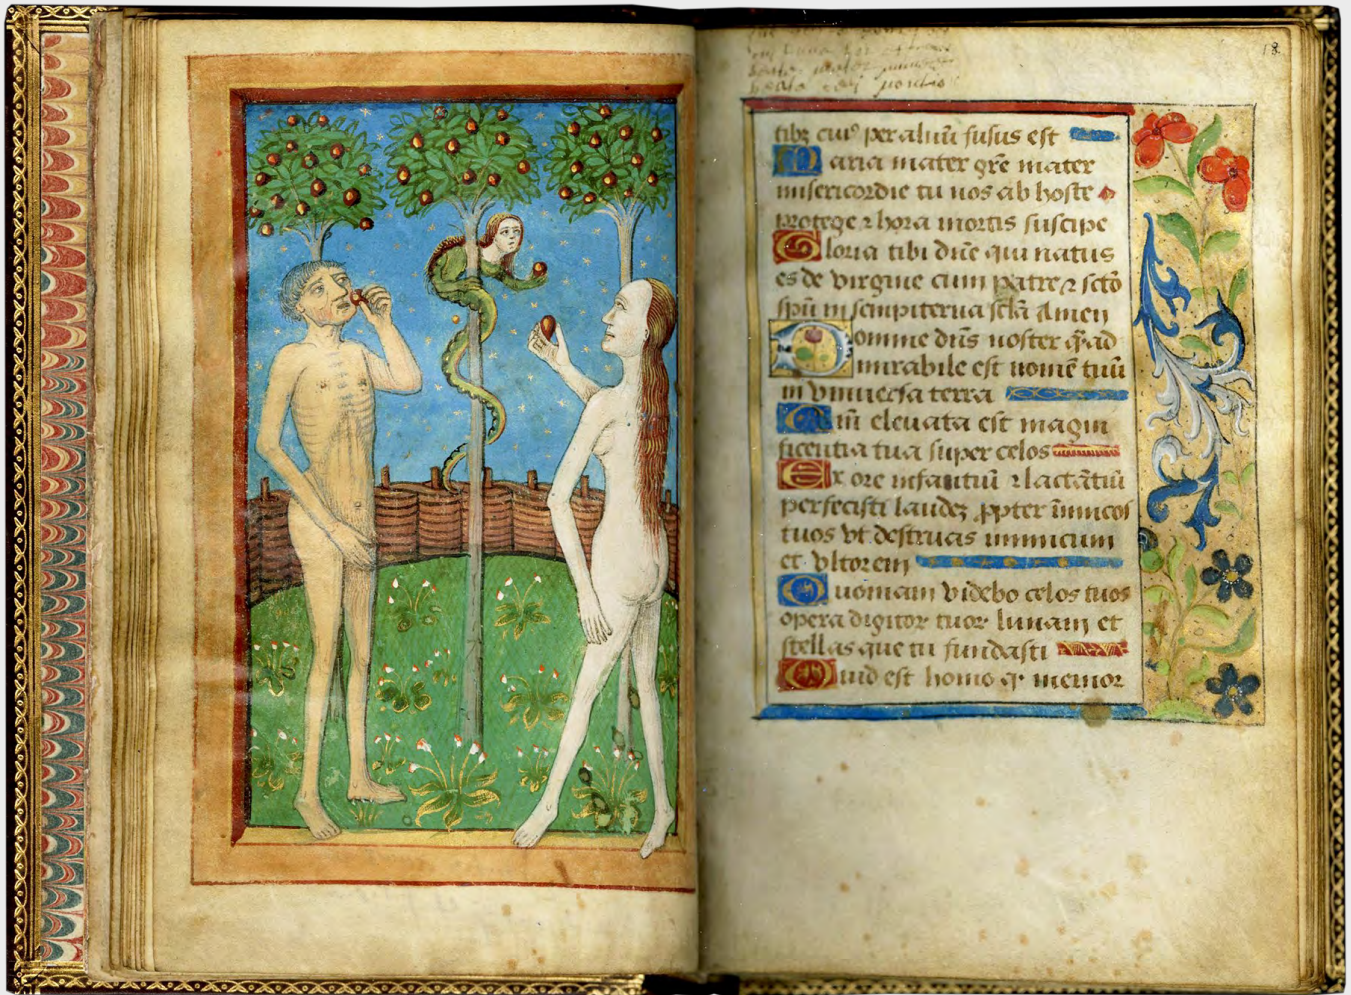 18
tibi cui⁹ per alvū fusus est
Maria mater grē mater
misericordie tu nos ab hoste
protege ⁊ hora mortis suscipe
Gloria tibi dn̄e qui natus
es de virgine cum patre ⁊ sctō
spū in sempiterna sclā Amen
Domine dn̄s noster q̄ ad
mirabile est nomē tuū
in vniuersa terra
Qm̄ eleuata est magni
ficentia tua super celos
Ex ore infantiū ⁊ lactātiū
perfecisti laudeȝ ꝓpter inimicos
tuos vt destruas inimicum
et vltorem
Quoniam videbo celos tuos
opera digitor tuor lunam et
stellas que tu fundasti
Quid est homo q memor